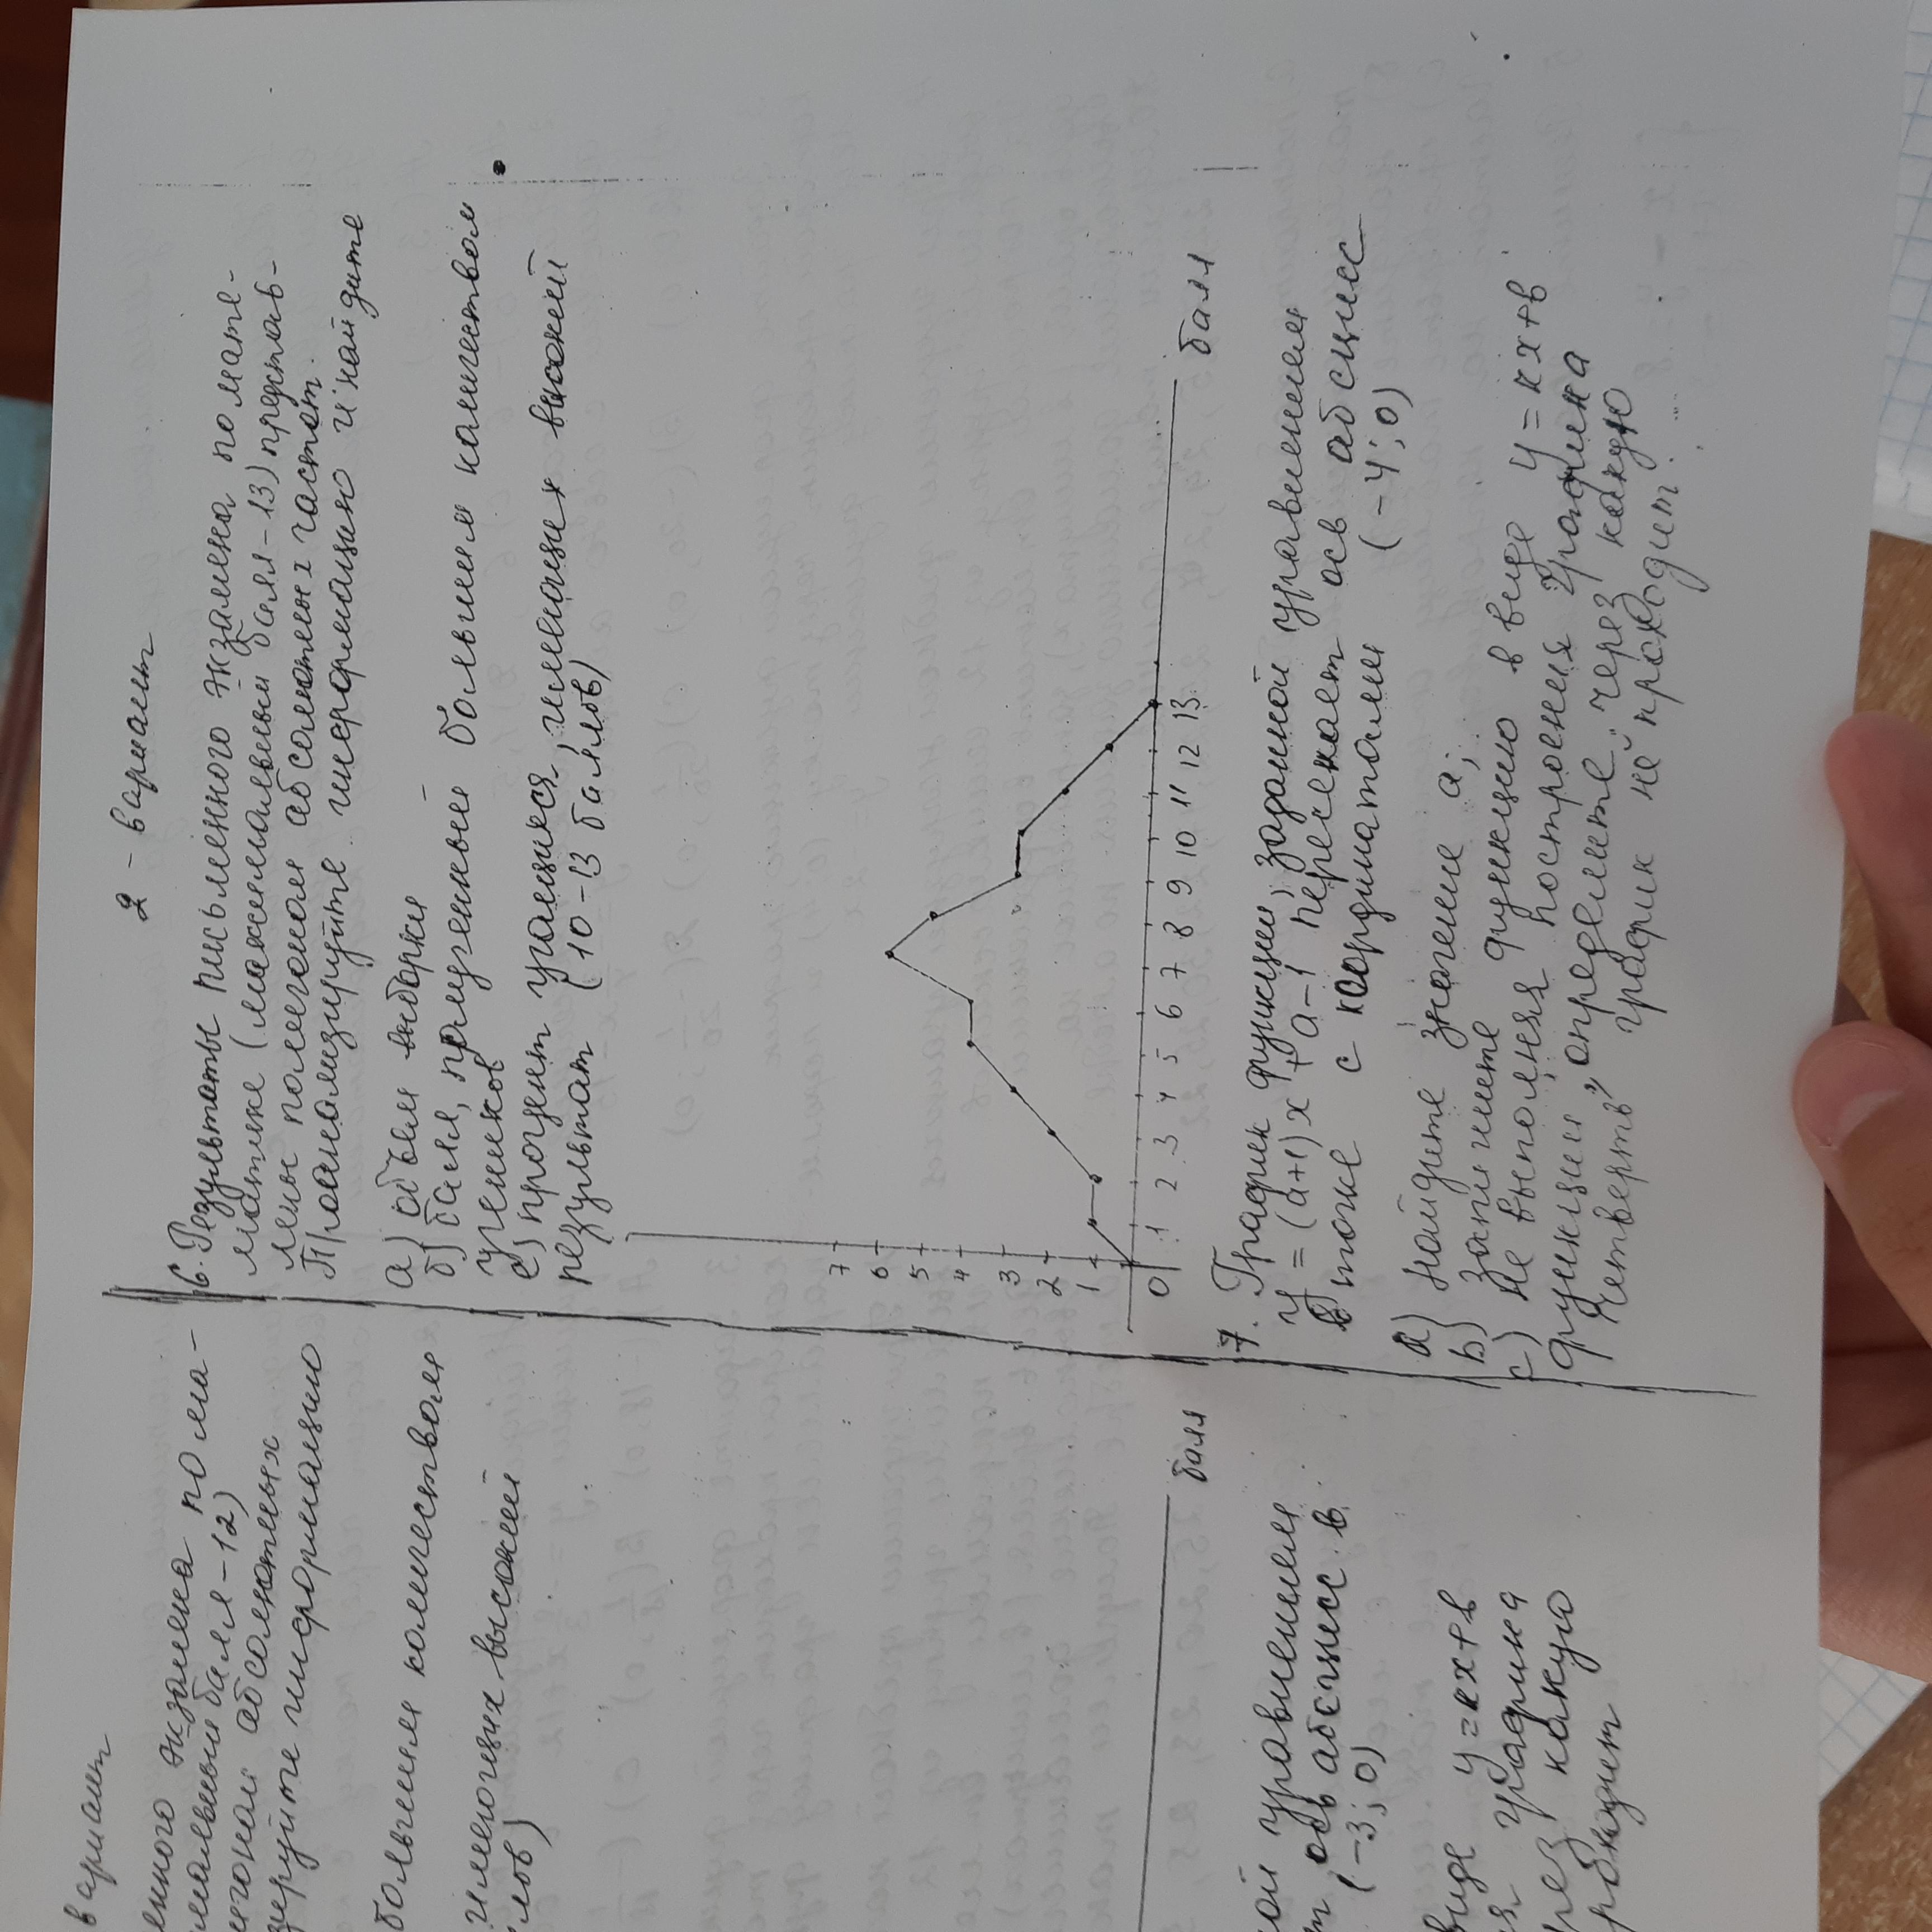 2 - вариант
6. Результаты письменного экзамена по мате-
матике (максимальный балл - 13) представ-
лены полигоном абсолютных частот.
Проанализируйте информацию и найдите
а) объём выборки
б) балл, полученный большим количеством
учеников
с) процент учащихся, имеющих высокий
результат (10-13 баллов)
7
6
5
4
3
2
1
0 1 2 3 4 5 6 7 8 9 10 11 12 13 балл
7. График функции, заданной уравнением
y = (a+1)x + a-1 пересекает ось абсцисс
в точке с координатами (-4; 0)
а) найдите значение а;
b) запишите функцию в виде y = кx+b
с) не выполняя построения графика
функции, определите, через какую
"четверть" график не проходит.
вариант
енного экзамена по ма-
мальный балл - 12)
игоном абсолютных
зируйте информацию
большим количеством
имеющих высокий
лов)
балл
ной уравнением
ось абсцисс в
(-3; 0)
виде y = кx+b
графика
рез какую